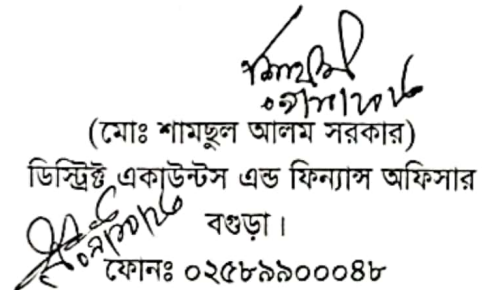 (মোঃ শামছুল আলম সরকার)
ডিস্ট্রিক্ট একাউন্টস এন্ড ফিন্যান্স অফিসার
বগুড়া।
ফোনঃ ০২৫৮৯৯০০০৪৮